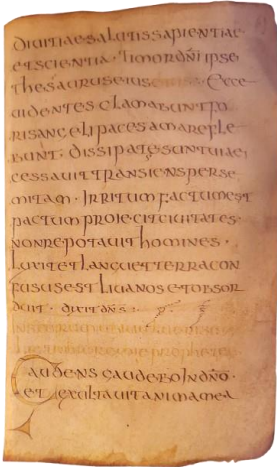 diuitiae salutis sapientiae
et scientia · timor dn̄i ipse
thesaurus eius · Ecce
uidentes clamabunt fo
ris angeli pacis amare fle
bunt · dissipatae sunt uiae
cessauit transiens per se
mitam · Irritum factum est
pactum proiecit ciuitates·
non repotauit homines ·
Luxit et languet terra con
fusus est libanos et obsor
duit · dixit dn̄s ·
Gaudens gaudebo In dn̄o ·
et exultauit anima mea